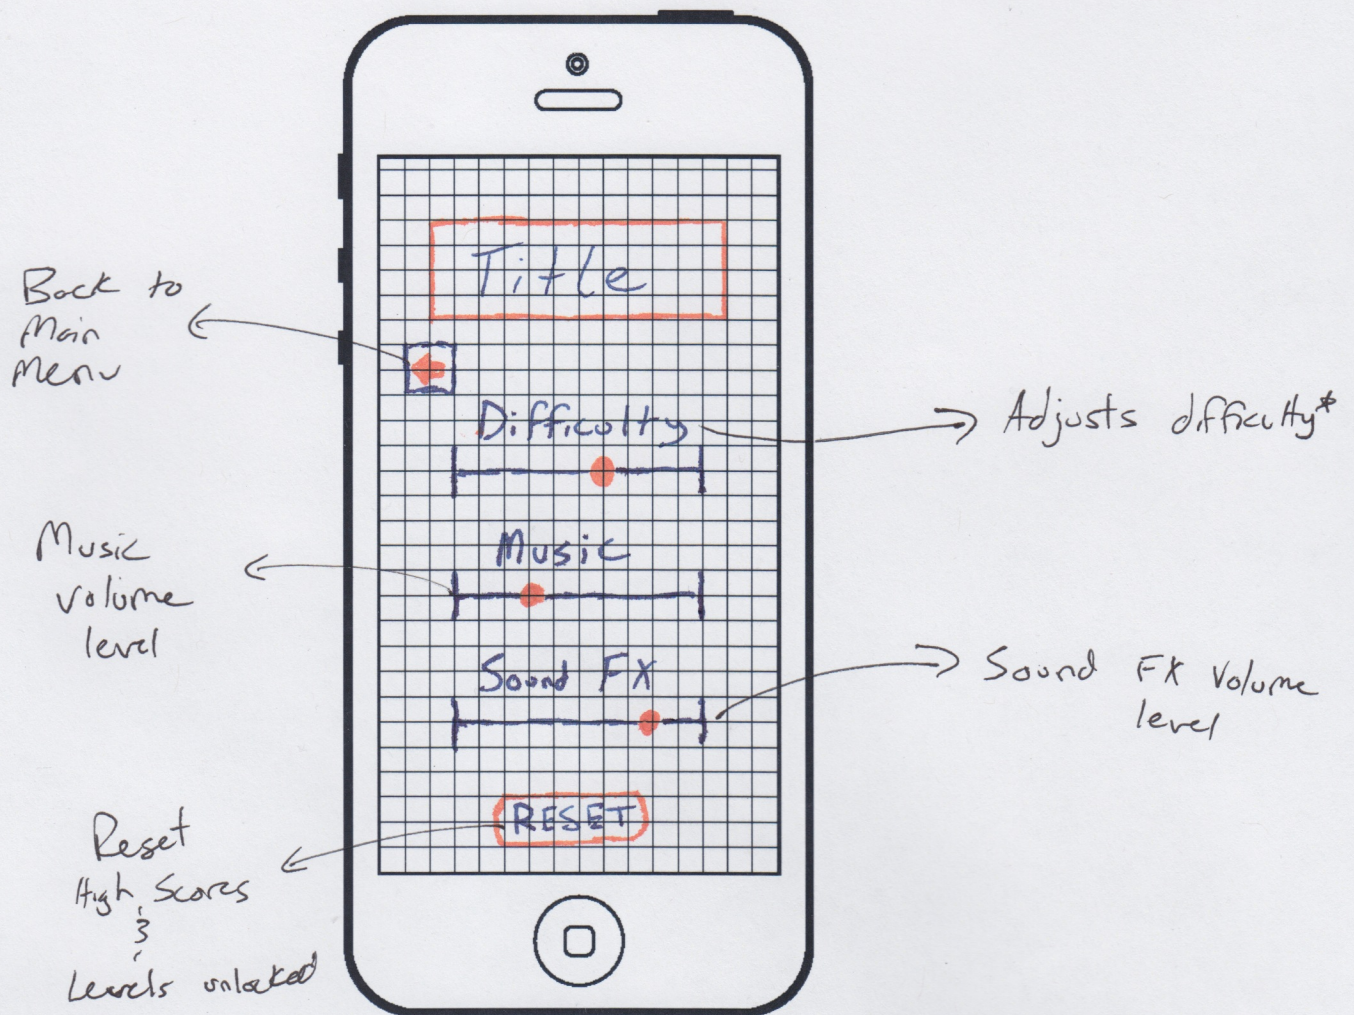 Title
Back to
Main
Menu
Difficulty
Adjusts difficulty*
Music
Music
volume
level
Sound FX
Sound FX Volume
level
RESET
Reset
High Scores
&
Levels unlocked